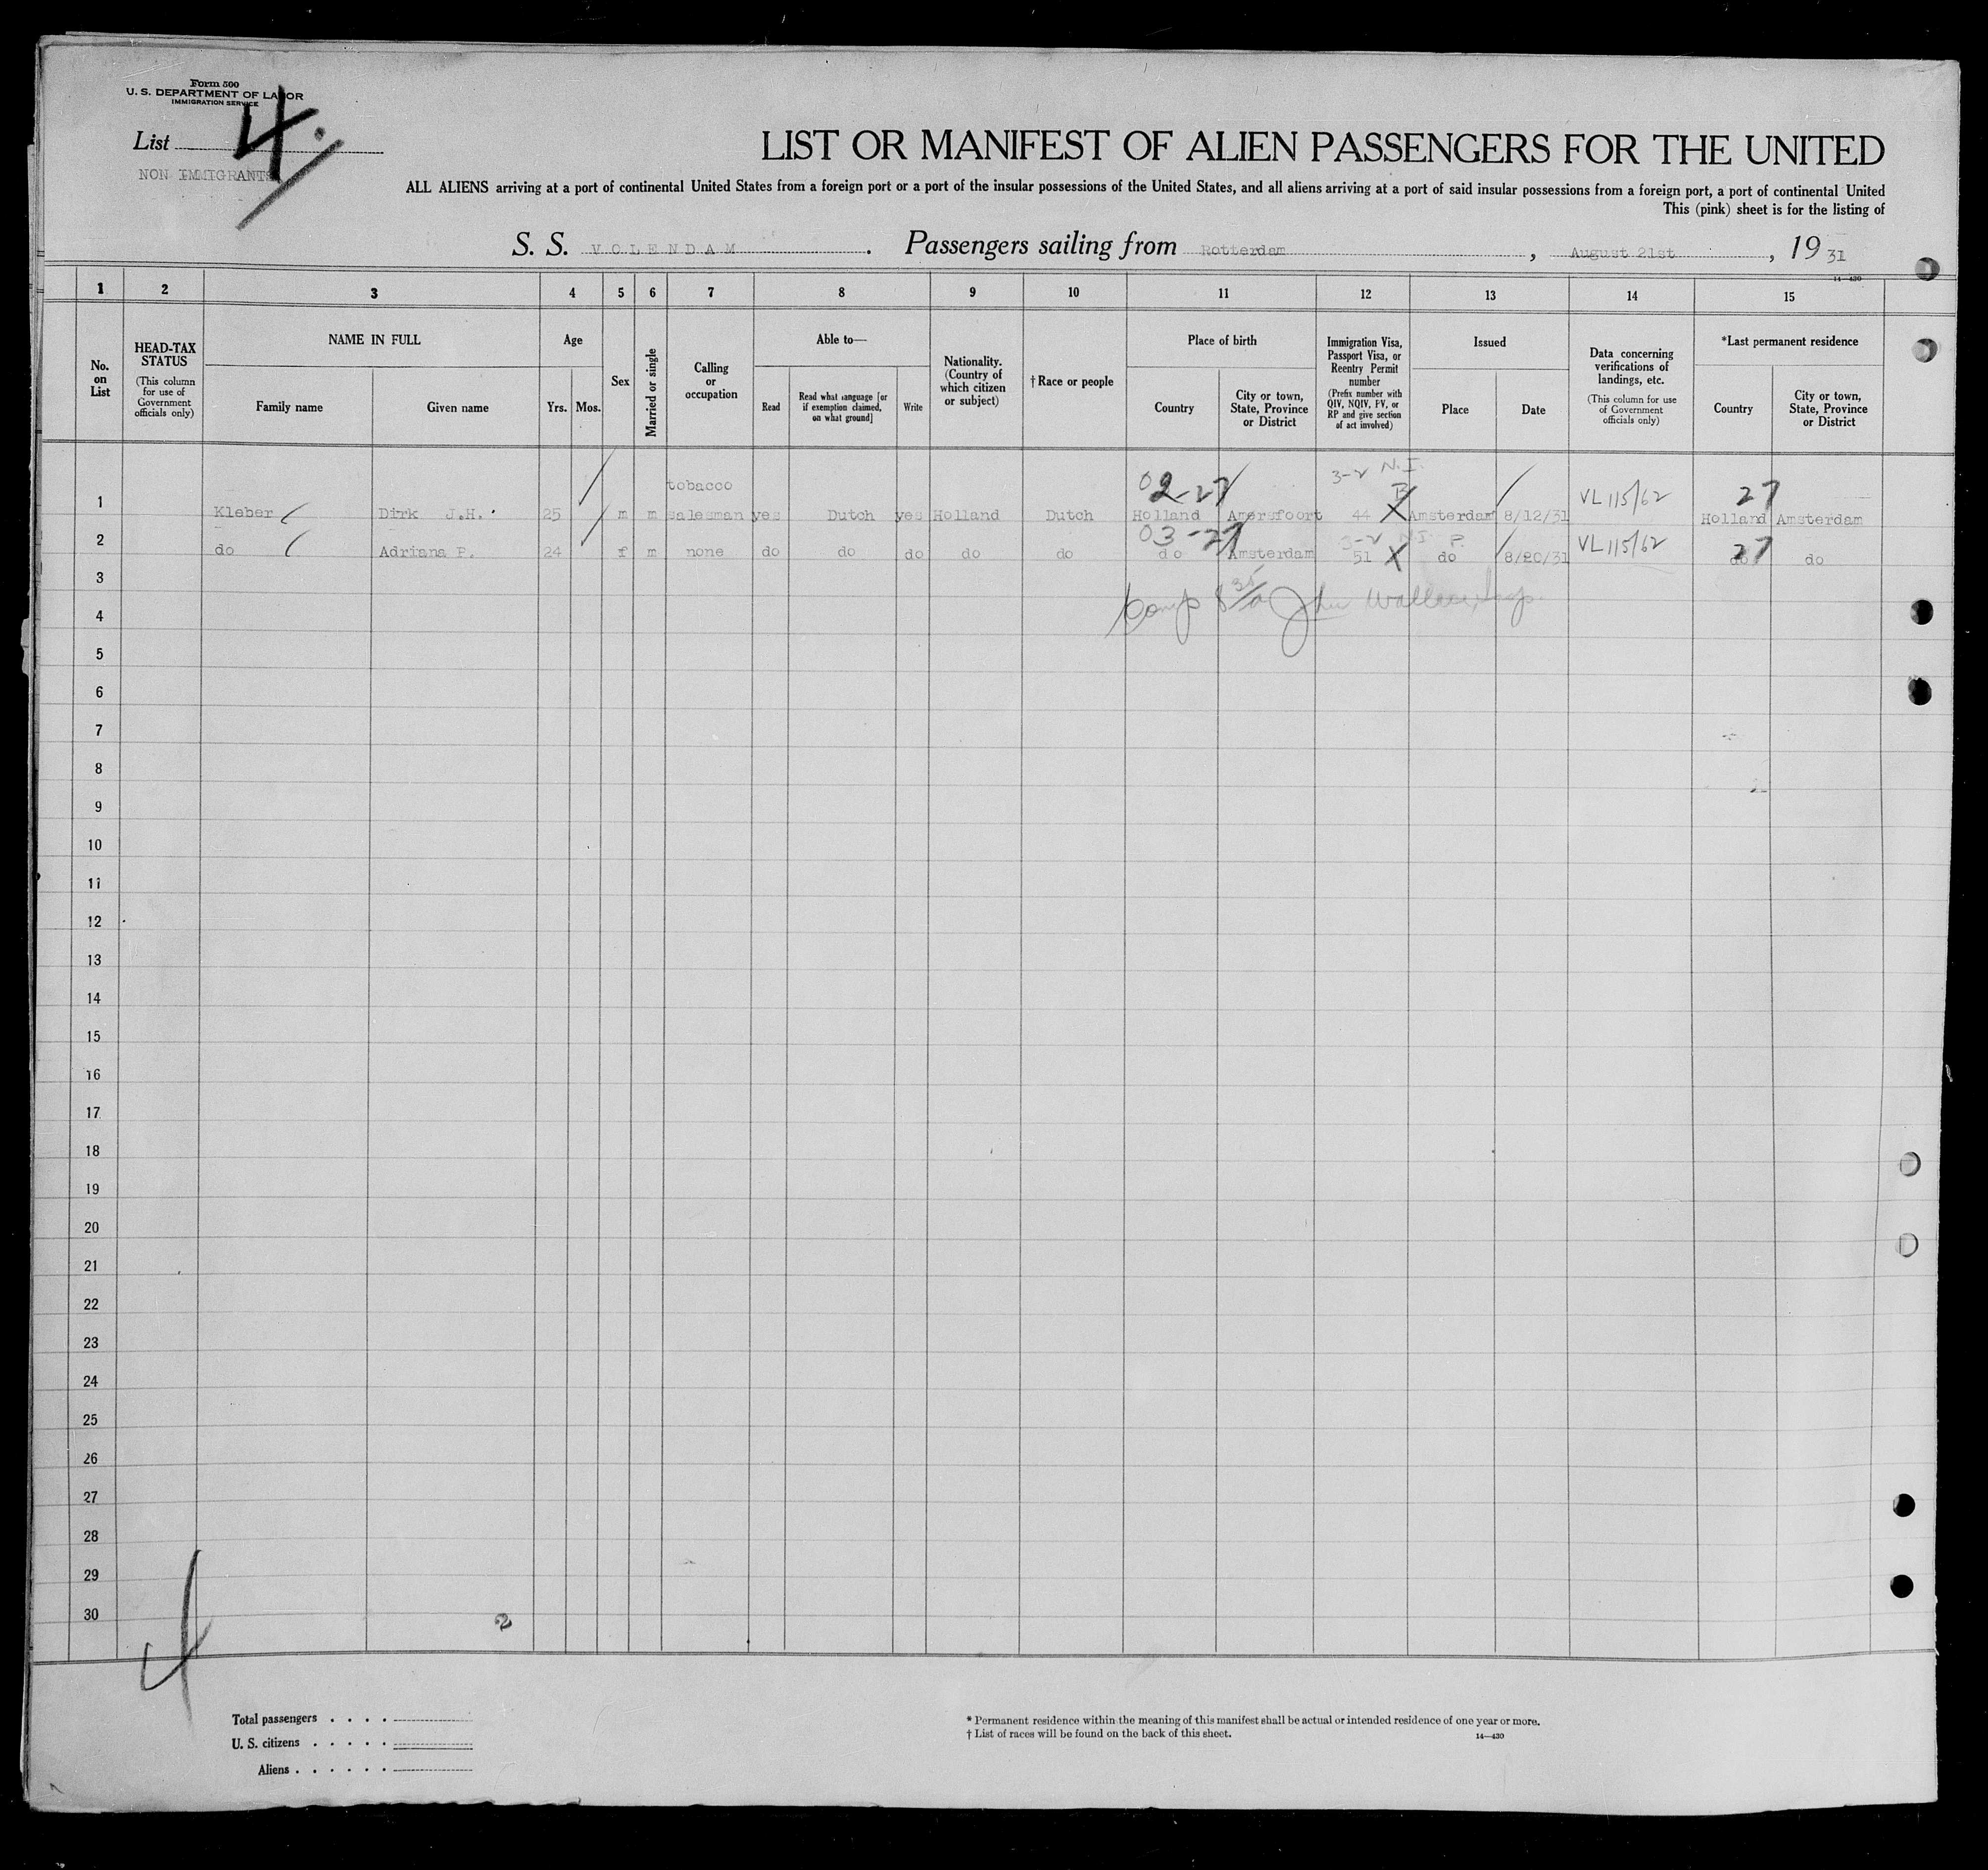 Form 500
U. S. DEPARTMENT OF LABOR
IMMIGRATION SERVICE
List 4.
NON IMMIGRANTS
LIST OR MANIFEST OF ALIEN PASSENGERS FOR THE UNITED
ALL ALIENS arriving at a port of continental United States from a foreign port or a port of the insular possessions of the United States, and all aliens arriving at a port of said insular possessions from a foreign port, a port of continental United
This (pink) sheet is for the listing of
S. S. VOLENDAM. Passengers sailing from Rotterdam, August 21st, 1931
14—430
1 2 3 4 5 6 7 8 9 10 11 12 13 14 15
No. on List
HEAD-TAX STATUS
(This column for use of Government officials only)
NAME IN FULL
Family name
Given name
Age
Yrs.
Mos.
Sex
Married or single
Calling or occupation
Able to—
Read
Read what language [or if exemption claimed, on what ground]
Write
Nationality. (Country of which citizen or subject)
† Race or people
Place of birth
Country
City or town, State, Province or District
Immigration Visa, Passport Visa, or Reentry Permit number
(Prefix number with QIV, NQIV, PV, or RP and give section of act involved)
Issued
Place
Date
Data concerning verifications of landings, etc.
(This column for use of Government officials only)
*Last permanent residence
Country
City or town, State, Province or District
tobacco 02-27 3-2 N.I. B VL115/62 27
1 Kleber Dirk J.H. 25 m m salesman yes Dutch yes Holland Dutch Holland Amersfoort 44 X Amsterdam 8/12/31 Holland Amsterdam
03-27 3-2 N.I. P. VL115/62 27
2 do Adriana P. 24 f m none do do do do do do Amsterdam 51 X do 8/20/31 do do
3
John Wallace, Insp.
4
5
6
7
8
9
10
11
12
13
14
15
16
17
18
19
20
21
22
23
24
25
26
27
28
29
30
2
Total passengers
U. S. citizens
Aliens
* Permanent residence within the meaning of this manifest shall be actual or intended residence of one year or more.
† List of races will be found on the back of this sheet.
14—430